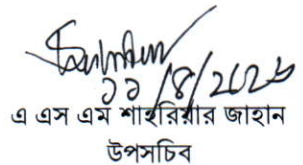 ১১/৪/২০২৬
এ এস এম শাহরিয়ার জাহান
উপসচিব